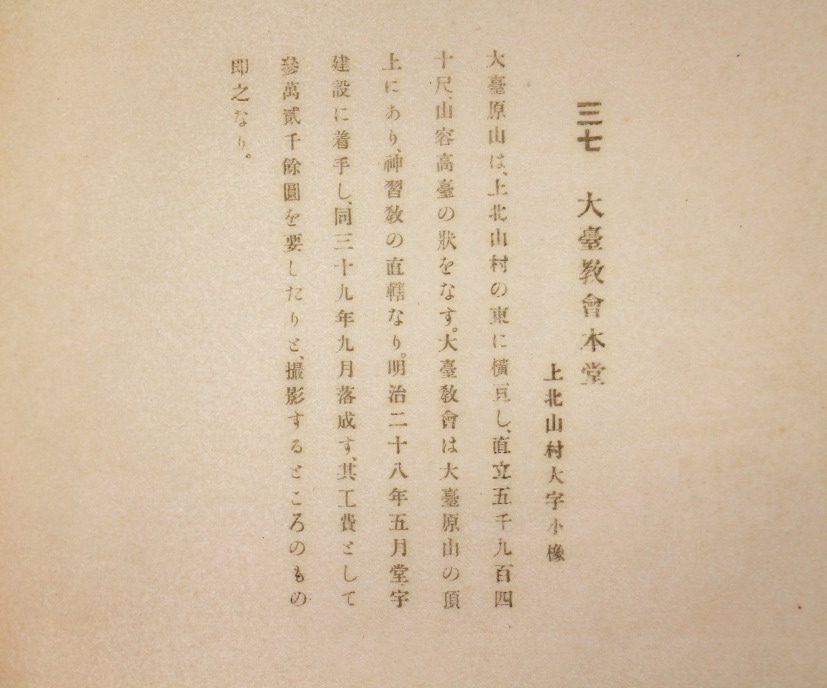 三七　大臺敎會本堂
上北山村大字小橡
大臺原山は、上北山村の東に橫亘し、直立五千九百四
十尺、山容高臺の狀をなす。大臺敎會は大臺原山の頂
上にあり、神習敎の直轄なり。明治二十八年五月堂宇
建設に着手し、同三十九年九月落成す、其工費として
參萬貳千餘圓を要したりと、撮影するところのもの
卽之なり。